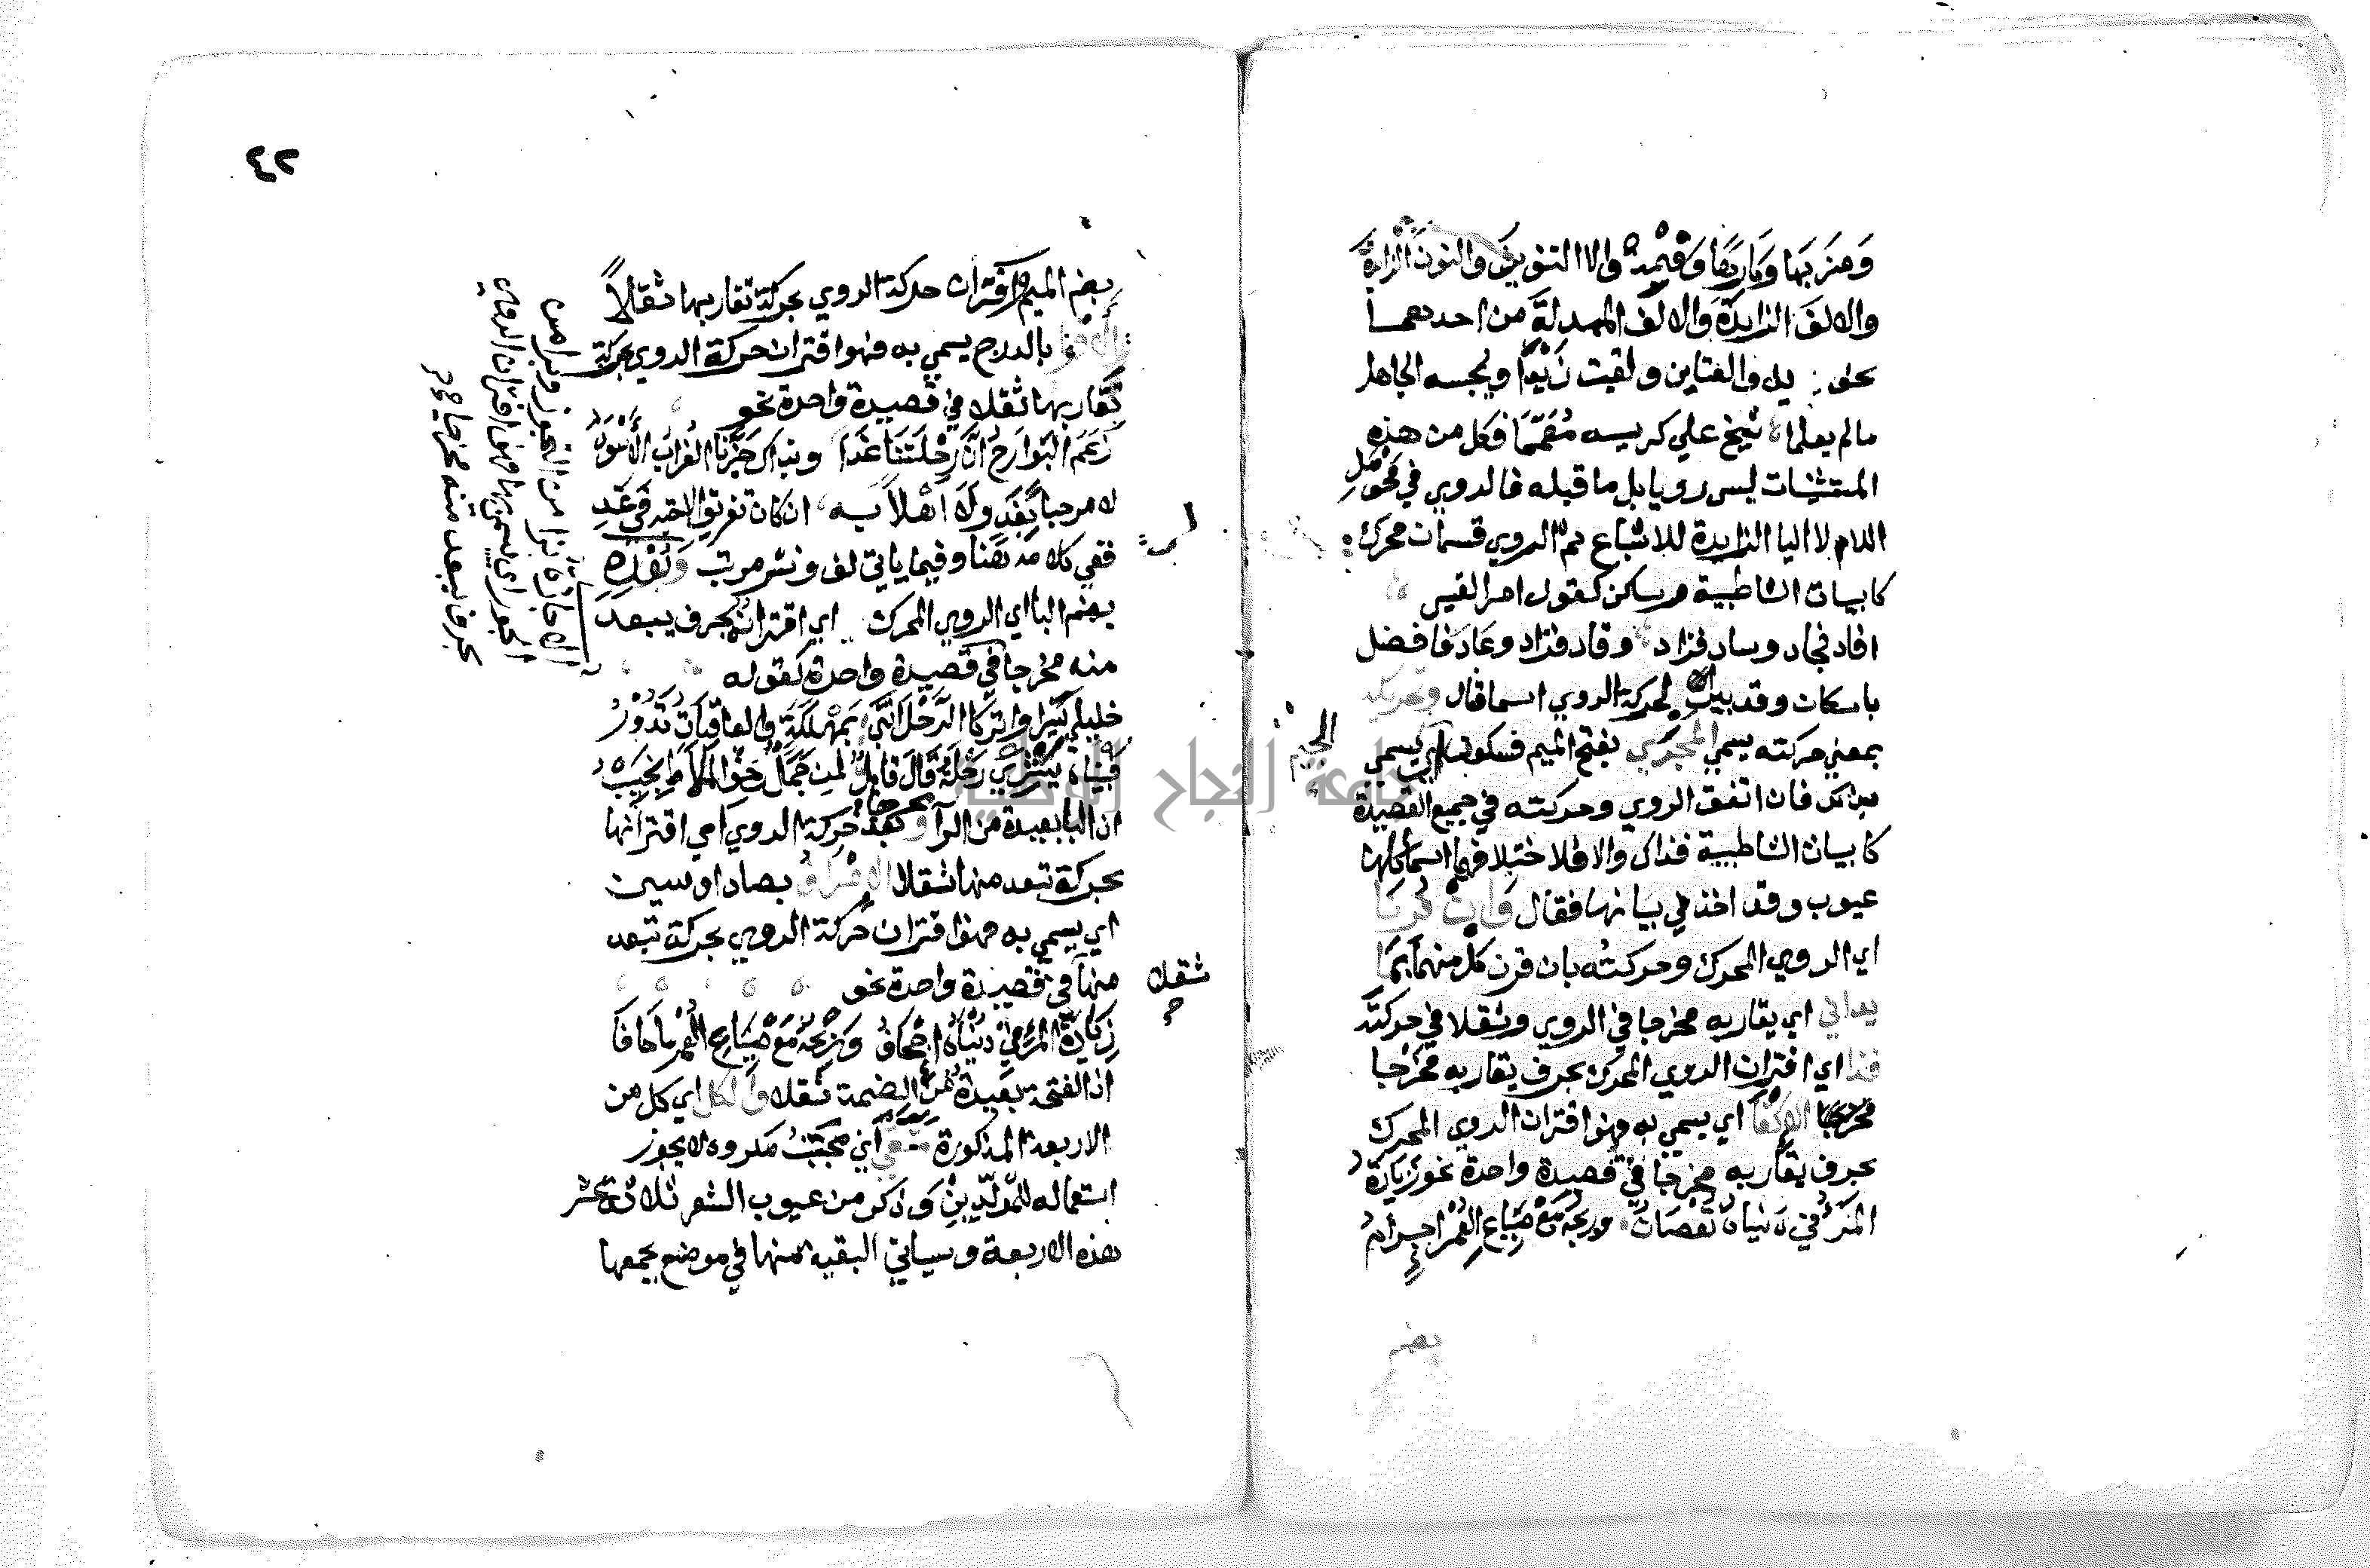 وضربها وباربها وقيمه والا التنوين والنون الزايدة
والالف الزايدة والالف المبدلة من احدهما
نحو زيد والعتابن ولقيت زيدا ويحسبه الجاهل
مالم يعلما شيخ على كرسيه معمما فكل من هذه
المستثنيات ليس رويا بل ما قبله فالروي في نحومل
اللام لا اليا الزايدة للاشباع ثم الروي قسمان محرك
كابيات الشاطبية وساكن كقول امر القيس
افاد فجاد وساد فزاد وقاد فزاد وعاد فافضل
باسكان وقد بين لحركة الروي اسما فقال وتحريكه
بمعني حركته يسمي المجري بفتح الميم فسكون الجيم اي يسمي
بذلك فان اتفق الروي وحركته في جميع القصيدة
كابيات الشاطبية فذاك والا فلاختلافهما اسما كلها
عيوب وقد اخذ في بيانها فقال وان قرنا
اي الروي المحرك وحركته بان قرن كل منهما بما
يداني اي يقاربه مخرجا في الروي وثقلا في حركته
فذا اي اقتران الروي المحرك بحرف يقاربه مخرجا
الاكفا اي يسمي به فهو اقتران الروي المحرك
بحرف يقاربه مخرجا في قصيدة واحدة نحو زيادة
المرء في دنياه نقصان وربحه مع ضياع العمر اجرام
بضم
٤٢
بضم الميم واقتران حركة الروي بحركة تقاربها ثقلا
الاقوا بالدرج يسمي به فهو اقتران حركة الروي بحركة
تقاربها ثقلا في قصيدة واحدة نحو
زعم البوارح ان رحلتنا غدا وبذاك خبرنا الغراب الاسود
لا مرحبا بغد ولا اهلا به ان كان تفريق الاحبة في غد
ففي كلامه هنا وفيما ياتي لف ونشر مرتب وبعده
بضم البا اي الروي المحرك اي اقترانه بحرف يبعد
منه مخرجا في قصيدة واحدة كقوله
خليلي سيرا واتركا الرحل انني بمهلكة والعاقبات تدور
فبيناه يشري رحله قال قايل لمن جمل رخو الملاط نجيب
اذ البا بعيدة من الرا مخرجا وبعد حركة الروي اي اقترانها
بحركة تبعد منها ثقلا الاصراف بصاد او سين
اي يسمي به فهو اقتران حركة الروي بحركة تبعد
منها ثقلا في قصيدة واحدة نحو
زيادة المرء في دنياه اجحاف وربحه مع ضياع العمر ما كافا
اذ الفتحة بعيدة من الضمة ثقلا والكل اي كل من
الاربعة المذكورة متقي اي مجتنب مكروه لا يجوز
استعماله للمولدين وذكر من عيوب الشعر ثلاثة عشر
هذه الاربعة وسياتي البقية منها في موضع يجمعها
الاجازة من التجوز وبراهين
بحرف يبعد منه مخرجا